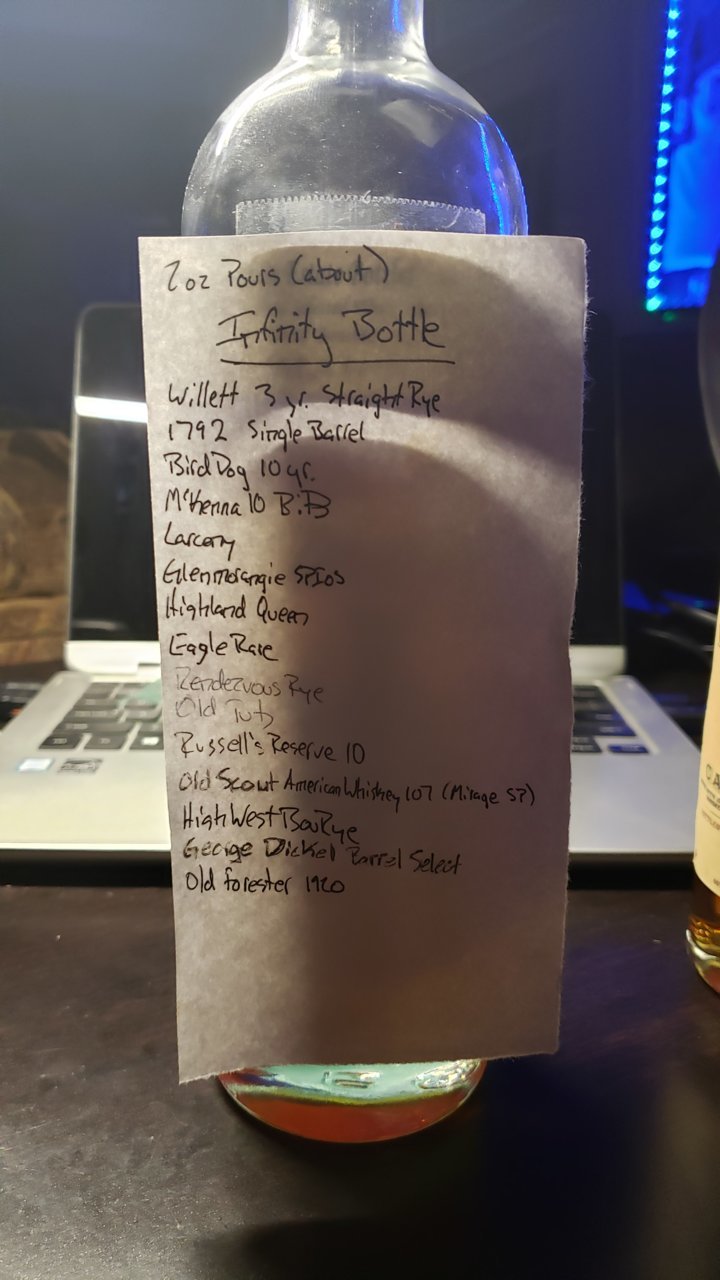 2oz Pours (about)
Infinity Bottle
Willett 3 yr. Straight Rye
1792 Single Barrel
Bird Dog 10 yr.
McKenna 10 B.i.B
Larceny
Glenmorangie SPIOS
Highland Queen
Eagle Rare
Rendezvous Rye
Old Tub
Russell's Reserve 10
Old Scout American Whiskey 107 (Mirage SP)
High West BouRye
George Dickel Barrel Select
Old forester 1920